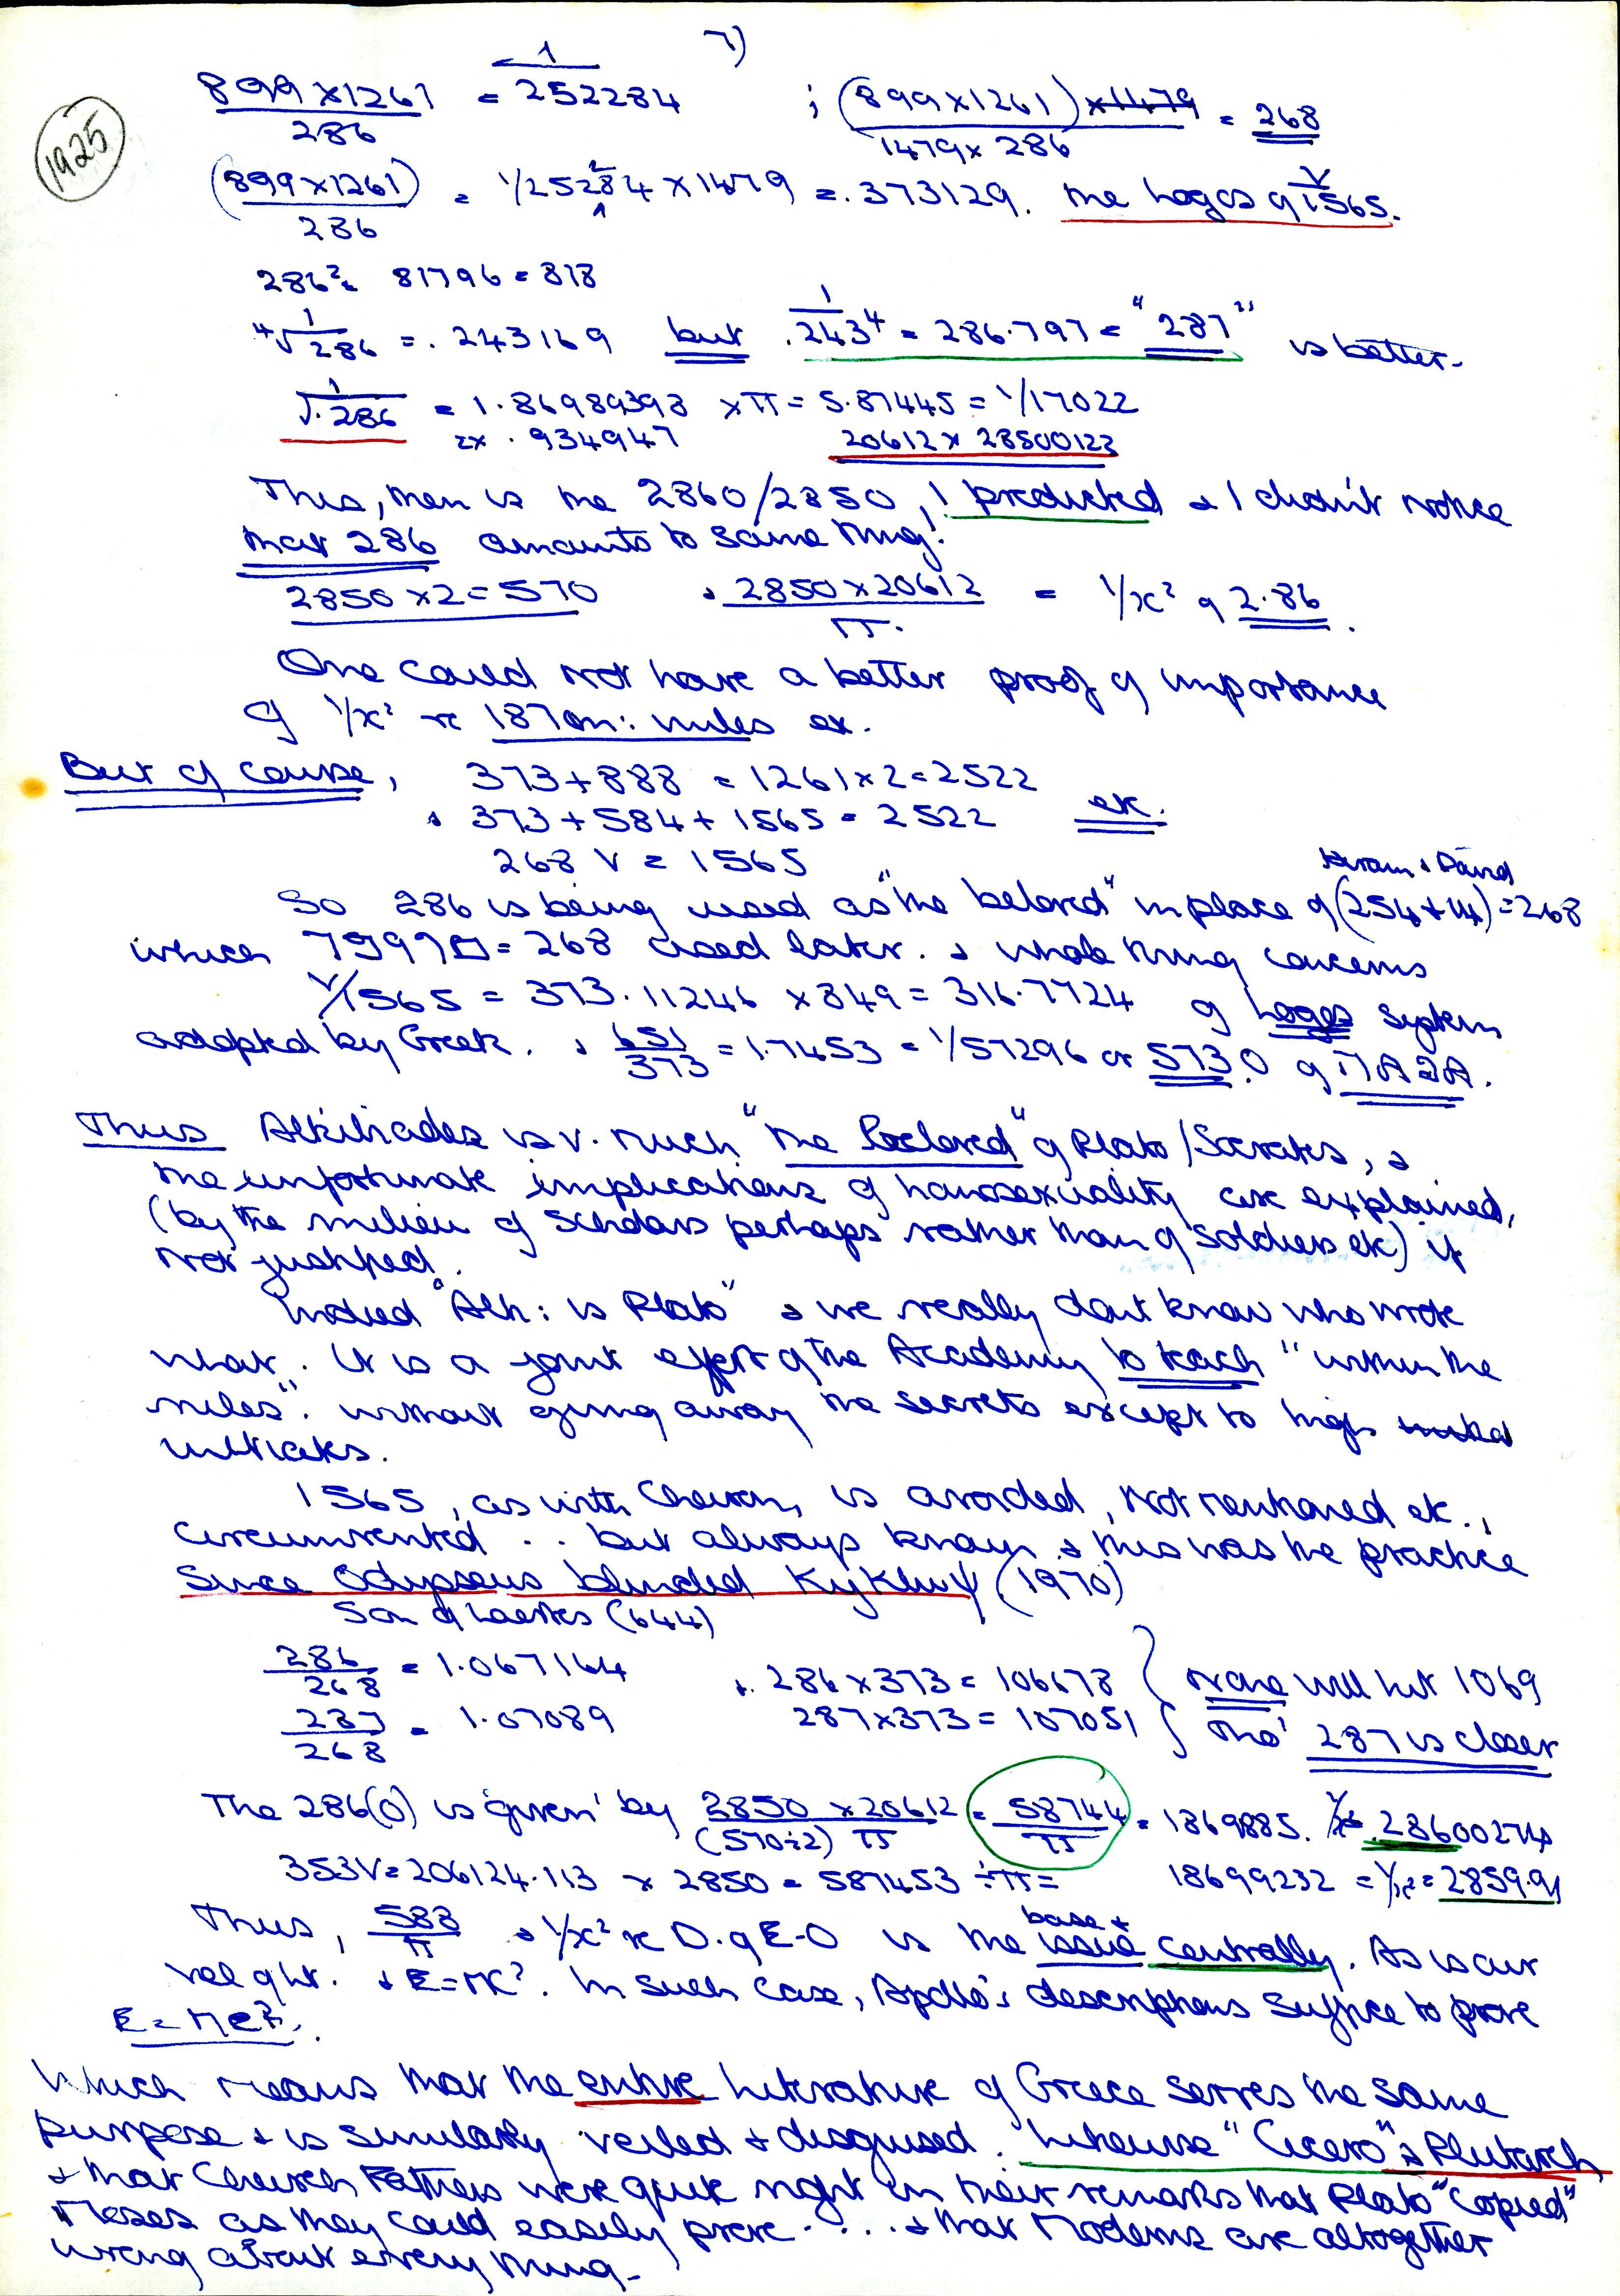 7)
1925
899×1261 / 286 = 1/252284 ; (899×1261)×1479 / 1479×286 = 268
(899×1261) / 286 = 1/252284 × 1479 = .373129. The Logos of √1565.
286² = 81796 = 818
⁴√1/286 = .243169 but 1/.243⁴ = 286.797 = "287" is better.
1/√.286 = 1.86989393 × π = 5.87445 = 1/17022
2× .934947 20612 × 28500123
This, then is the 2860/2850, I predicted & I didn't notice
that 286 amounts to same thing!
2850×2=570 & 2850×20612 / π. = 1/x² of 2.86.
One could not have a better proof of importance
of 1/x² re 187 on: miles etc.
But of course, 373+888 = 1261×2=2522
& 373+584+1565 = 2522 etc.
268 V = 1565
Hiram & David
So 286 is being used as "the beloved" in place of (254+14)=268
which = 268 used later. & whole thing concerns
√1565 = 373.11246 × 849 = 316.7724 of Logos system
adopted by Greek. & 651/373 = 1.7453 = 1/57296 or 573.0 of
Thus Alkibiades is v. much "the beloved" of Plato/Socrates, &
the unfortunate implications of homosexuality are explained,
(by the milieu of scholars perhaps rather than of soldiers etc) if
not justified.
Indeed "Alk: is Plato" & we really don't know who wrote
what. It is a joint effort of the Academy to teach "within the
rules". without giving away the secrets except to high
initiates.
1565, as with Cheiron, is avoided, not mentioned etc.,
circumvented .. but always known & this was the practice
since Odysseus blinded Kyklwψ (1970)
Son of Laertes (644)
286/268 = 1.067164 & 286×373 = 106678 } none will hit 1069
287/268 = 1.07089 287×373 = 107051 } tho' 287 is closer
The 286(0) is 'given' by 2850 ×20612 / (570÷2) π = 58744/π = 1869885. 1/x² .28600274
353V=206124.113 × 2850 = 587453 ÷π= 18699232 = 1/x² = 2859.91
Thus, 588/π & 1/x² re D. of E-O is the base + issue centrally. As is our
vel of lt. & E=MC². In such case, Apollo's descriptions suffice to prove
E=MC².
Which means that the entire Literature of Greece serves the same
purpose & is similarly veiled & disguised. Likewise "Cicero" & Plutarch
& that Church Fathers were quite right in their remarks that Plato "copied"
Moses as they could easily prove.... & that Moderns are altogether
wrong about everything.